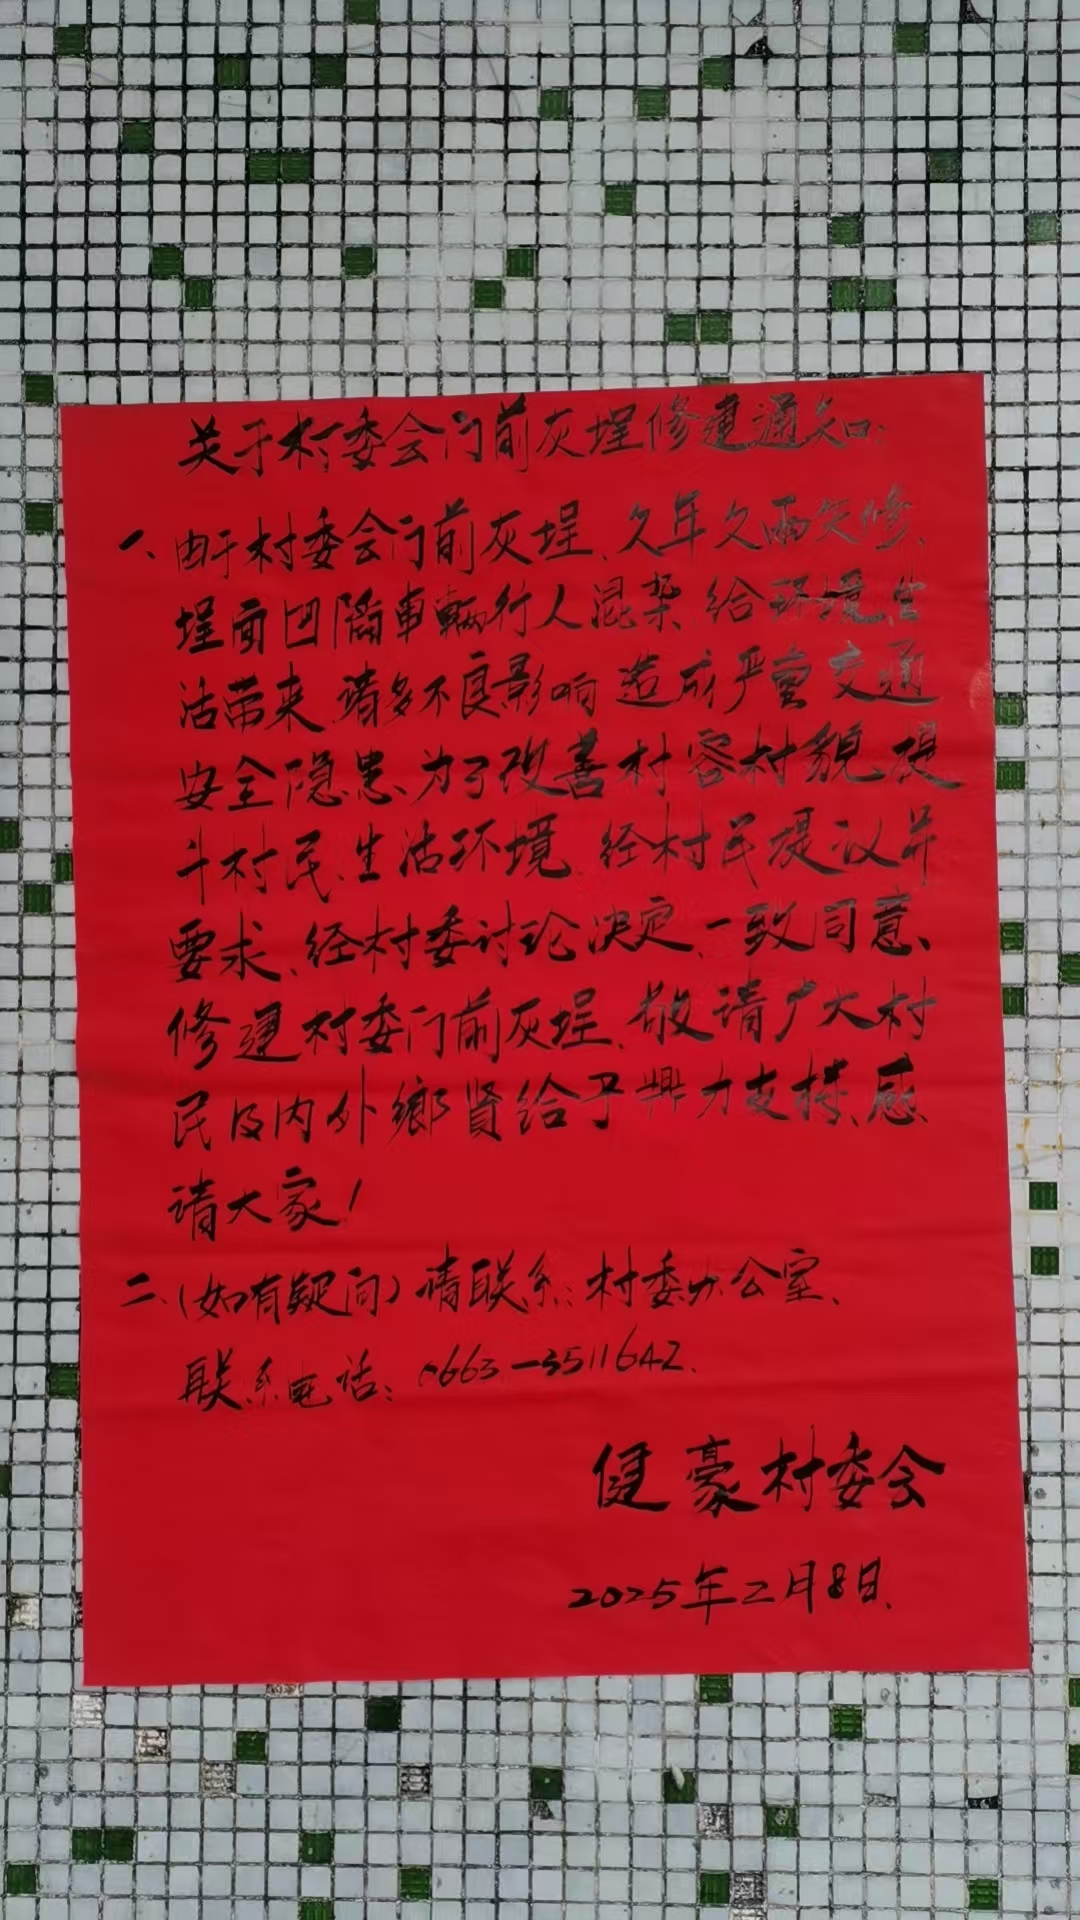 关于村委会门前灰埕修建通知:
一、由于村委会门前灰埕、久年久雨失修、
埕面凹陷車輛行人混杂、给环境生
活带来、诸多不良影响造成严重交通
安全隐患、为了改善村容村貌、提
升村民、生活环境、经村民提议并
要求、经村委讨论决定、一致同意、
修建村委门前灰埕、敬请广大村
民及内外鄉贤给予鼎力支持、感
请大家!
二、(如有疑问)请联系:村委办公室、
联系电话:0663-3511642.
健豪村委会
2025年二月8日.